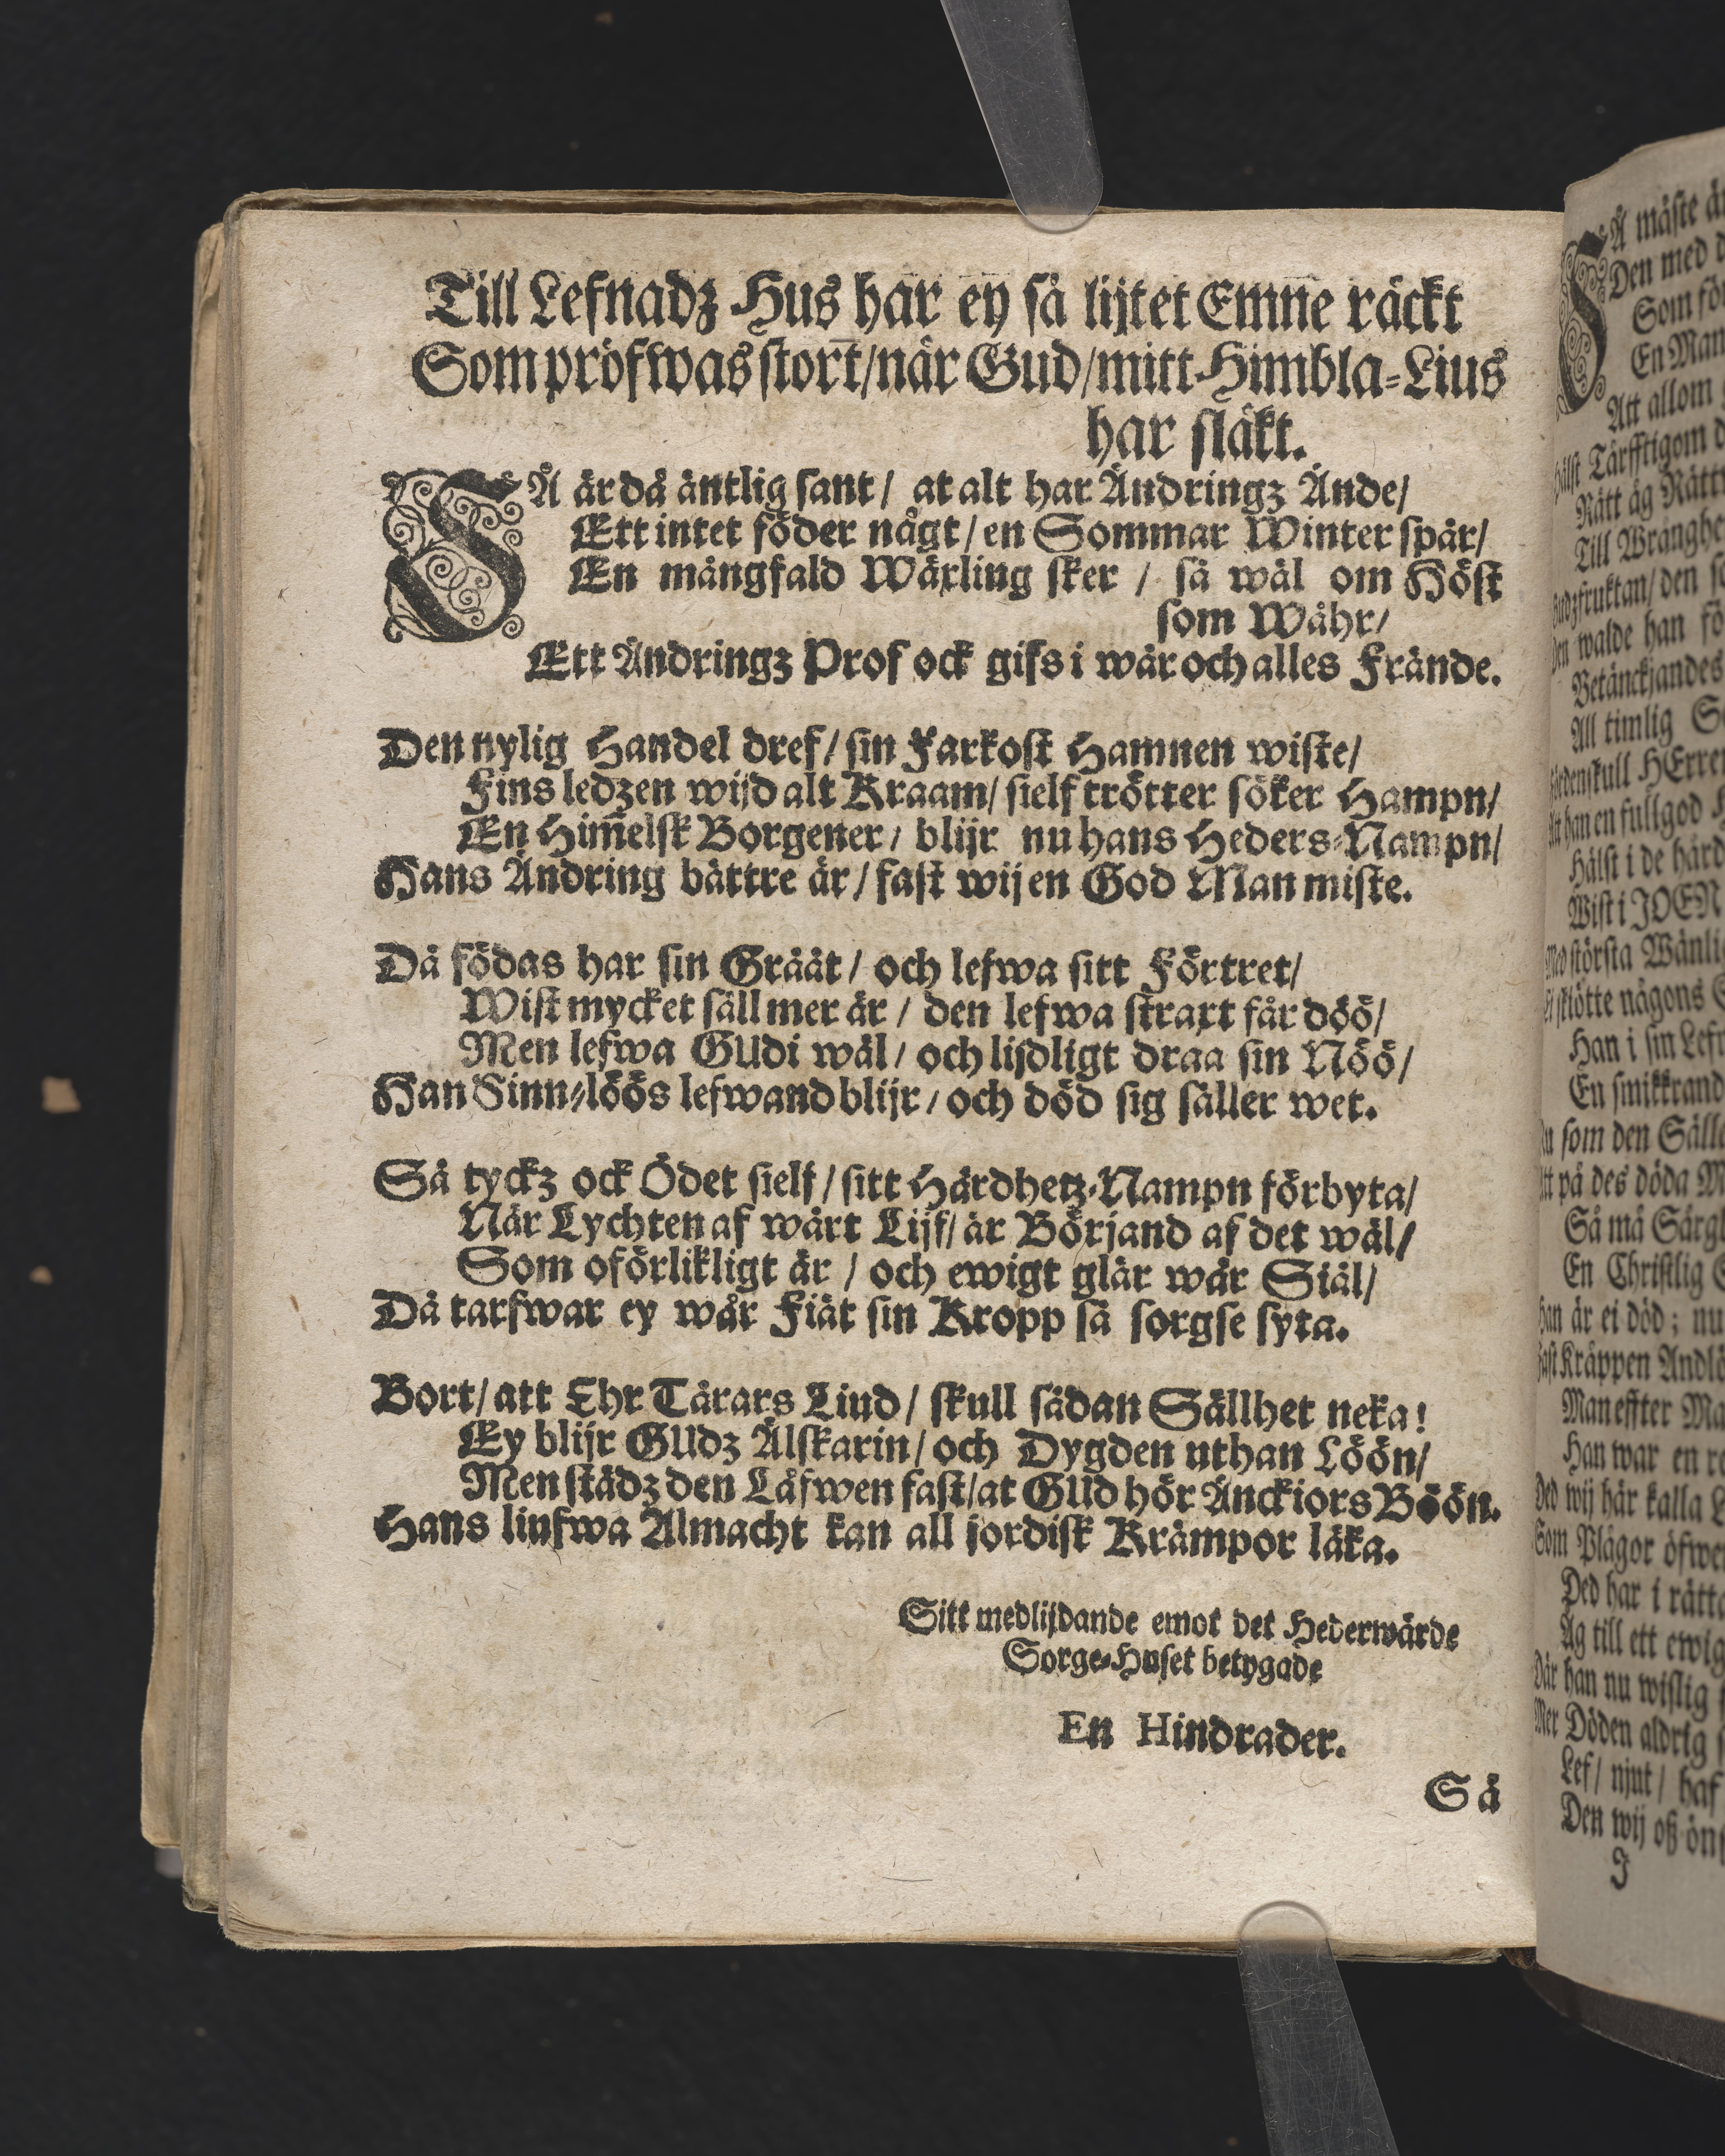 Till Lefnadz Hus har ey så lijtet Emne räckt
Som pröfwas stort/när Gud/mitt Himbla-Lius
har släkt.
SÅ är då äntlig sant/ at alt har Ändringz Ände/
Ett intet föder någt/en Sommar Winter spår/
En mångfald Wäxling sker / så wäl om Höst
som Wåhr/
Ett Ändringz Prof ock gifs i wår och alles Frände.
Den nylig Handel dref/ sin Farkost Hamnen wiste/
Fins ledzen wijd alt Kraam/ sielf trötter söker Hampn/
En Him̃elsk Borgener/ blijr nu hans Heders-Nampn/
Hans Ändring bättre är/ fast wij en God Man miste.
Då födas har sin Gråät/ och lefwa sitt Förtret/
Wist mycket säll mer är / den lefwa straxt får döö/
Men lefwa GUdi wäl/ och lijdligt draa sin Nöö/
Han Sinn-löös lefwand blijr/ och död sig säller wet.
Så tyckz ock Ödet sielf/ sitt Hårdhetz-Nampn förbyta/
När Lychten af wårt Lijf/ är Börjand af det wäl/
Som oförlikligt är / och ewigt glär wår Siäl/
Då tarfwar ey wår Fiät sin Kropp så sorgse syta.
Bort/ att Ehr Tårars Liud/ skull sådan Sällhet neka!
Ey blijr GUdz Älskarin/ och Dygden uthan Löön/
Men städz den Låfwen fast/at GUd hör Änckiors Böön.
Hans liufwa Almacht kan all jordisk Krämpor läka.
Sitt medlijdande emot det Hederwärde
Sorge-Huset betygade
En Hindrader.
Så
Å måste
Den med
En Man
Att allom
hälst Tärfftigom
Rätt äg
Till
den
walde han
Betänckjandes
All timlig
HErren
han en fullgod
Hälst i de
Wist i
största
nägons
Han i sin
En
som den
på des döda
Så må
En Christlig
är ei död; nu
Man effter
Han war en
wij här kalla
Som Plågor
Ded har i
Äg till ett
han nu wislig
Döden aldrig
Lef/ njut/ haf
Den wij oß
J